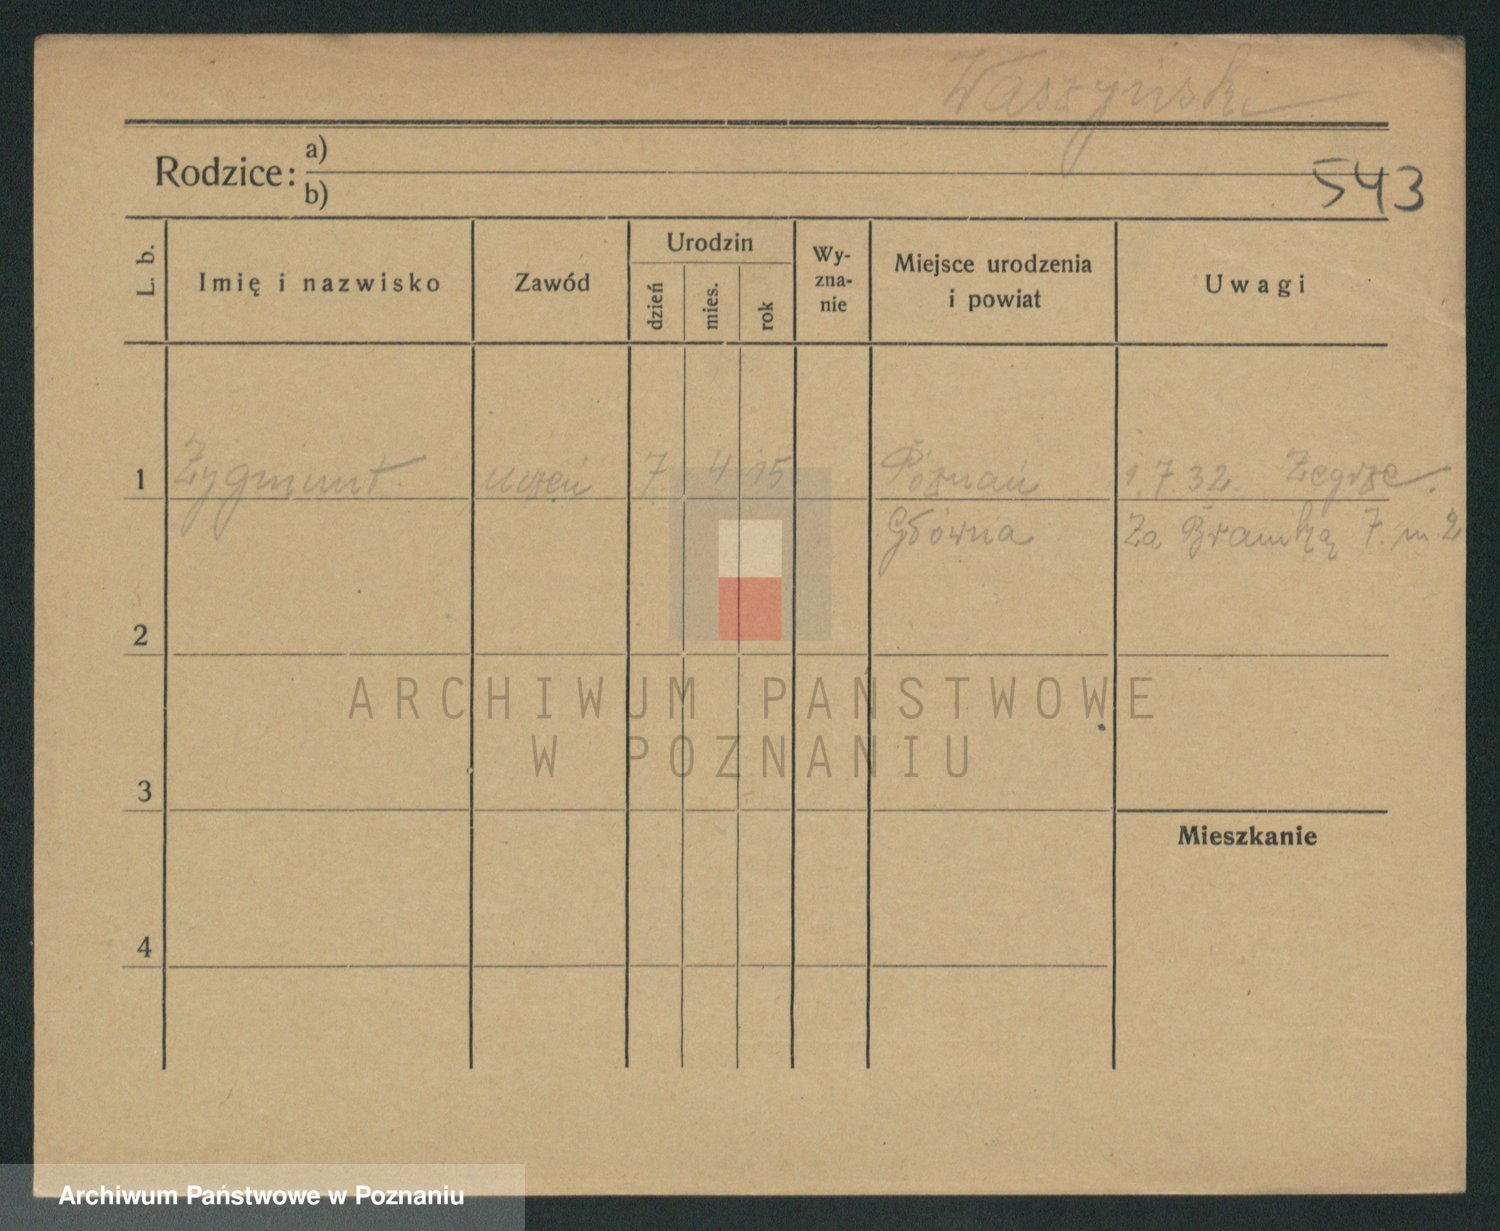 Waszyński
Rodzice: a)
b)
543
L. b.
Imię i nazwisko
Zawód
Urodzin
dzień
mies.
rok
Wy-
zna-
nie
Miejsce urodzenia
i powiat
Uwagi
1 Zygmunt. uczeń 7. 4 15 Poznań 1.7.32. Zegrze.
Główna Za Bramką 7. m 2
2
ARCHIWUM PAŃSTWOWE
W POZNANIU
3
Mieszkanie
4
Archiwum Państwowe w Poznaniu